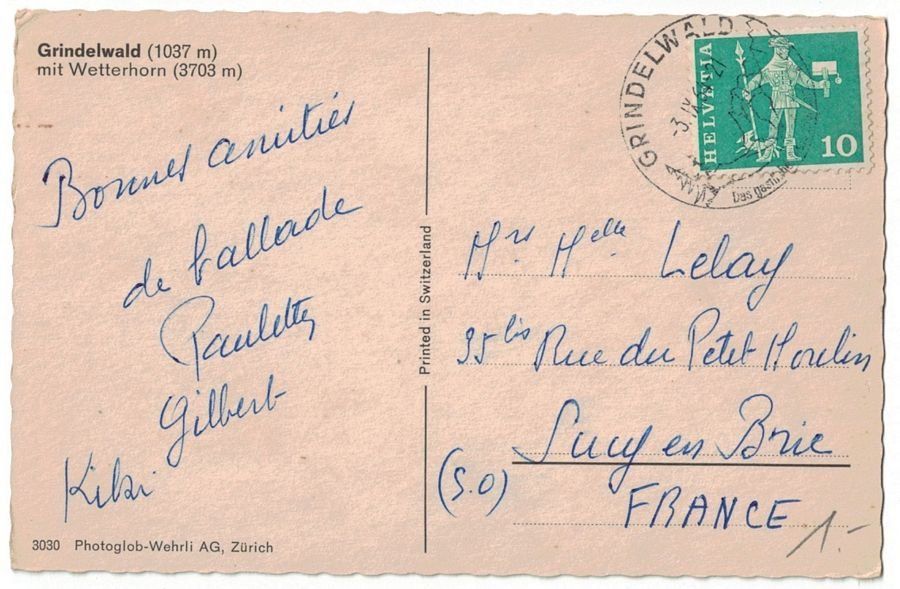 Grindelwald (1037 m)
mit Wetterhorn (3703 m)
Bonnes amitiés
de ballade
Paulette
Gilbert
Kiki
3030 Photoglob-Wehrli AG, Zürich
Printed in Switzerland
GRINDELWALD
-3.IX.
HELVETIA
10
Das
Mrs Melle Lelay
35 bis Rue du Petit Moulin
Sucy en Brie
(S.O)
FRANCE
1.-